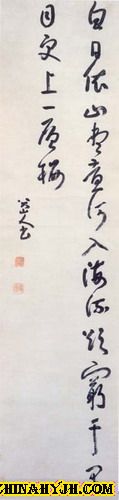 白日依山盡黄河入海流欲窮千里
目更上一層樓
八大山人書
HINAHYJH.COM